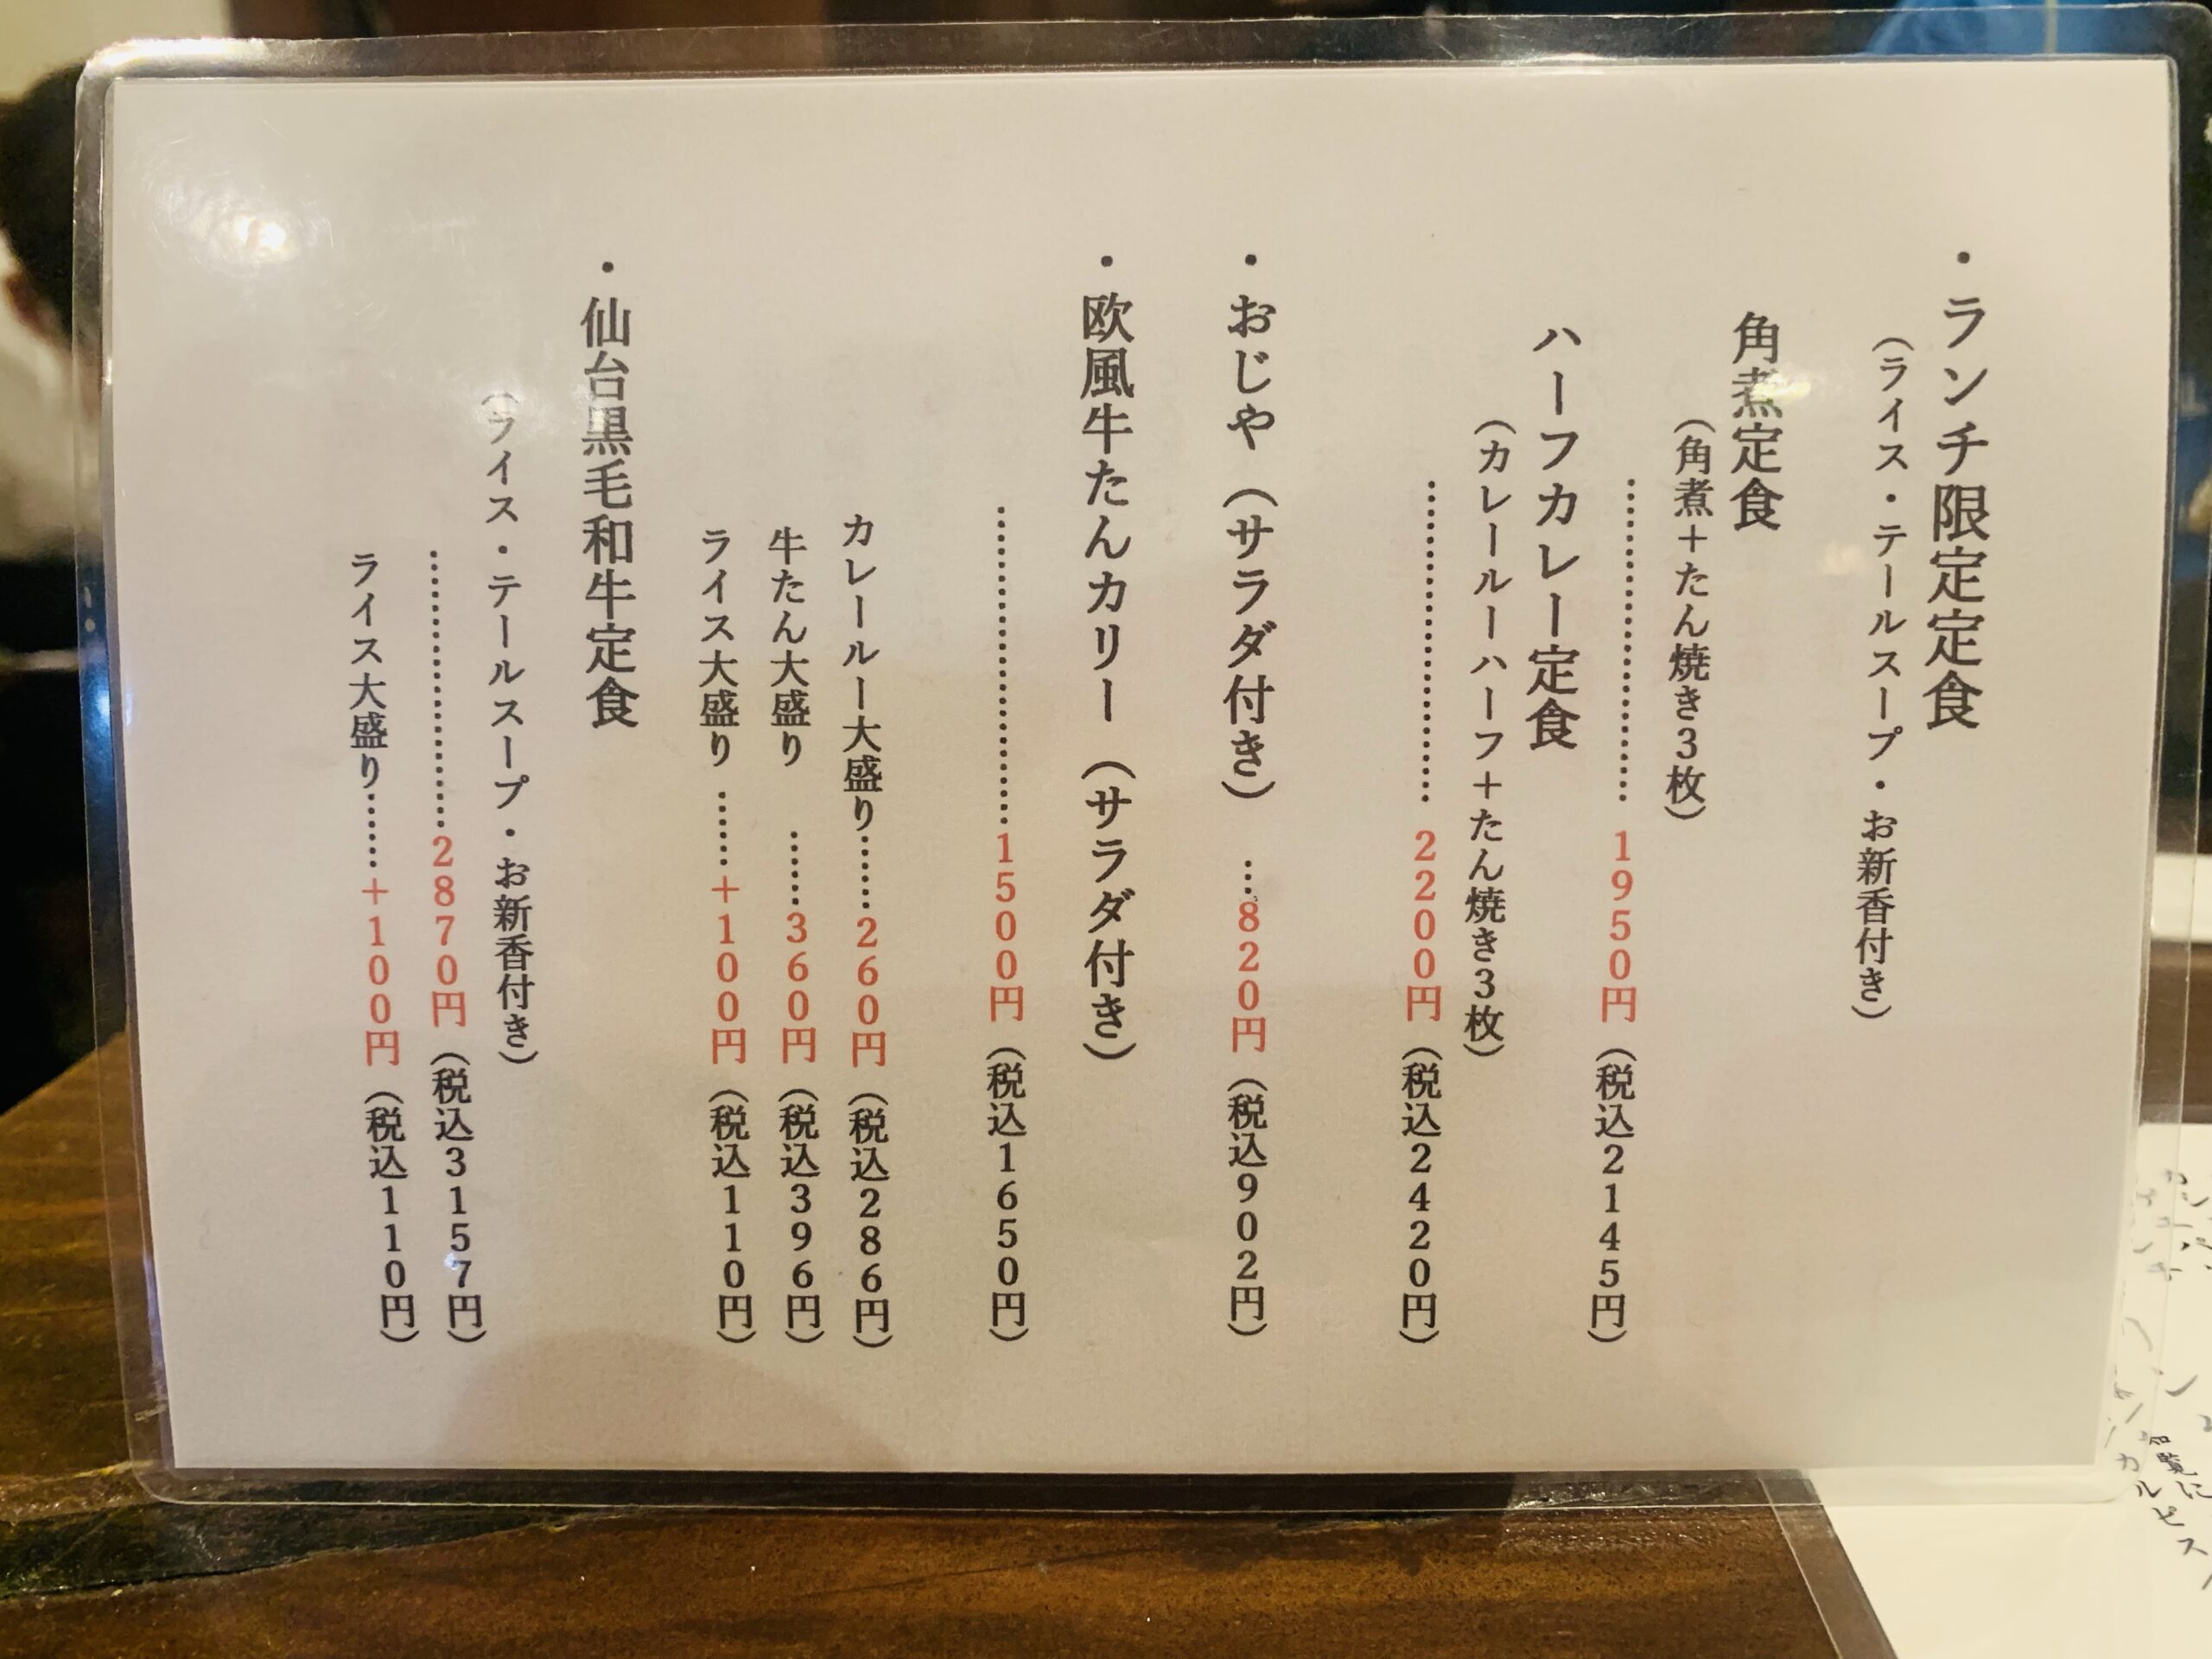 ・ランチ限定定食
（ライス・テールスープ・お新香付き）
角煮定食
（角煮＋たん焼き３枚）
……………………１９５０円（税込２１４５円）
ハーフカレー定食
（カレールーハーフ＋たん焼き３枚）
……………………２２００円（税込２４２０円）
・おじや（サラダ付き）…８２０円（税込９０２円）
・欧風牛たんカリー（サラダ付き）
……………………１５００円（税込１６５０円）
カレールー大盛り……２６０円（税込２８６円）
牛たん大盛り……３６０円（税込３９６円）
ライス大盛り……＋１００円（税込１１０円）
・仙台黒毛和牛定食
（ライス・テールスープ・お新香付き）
…………………２８７０円（税込３１５７円）
ライス大盛り……＋１００円（税込１１０円）
カルピス